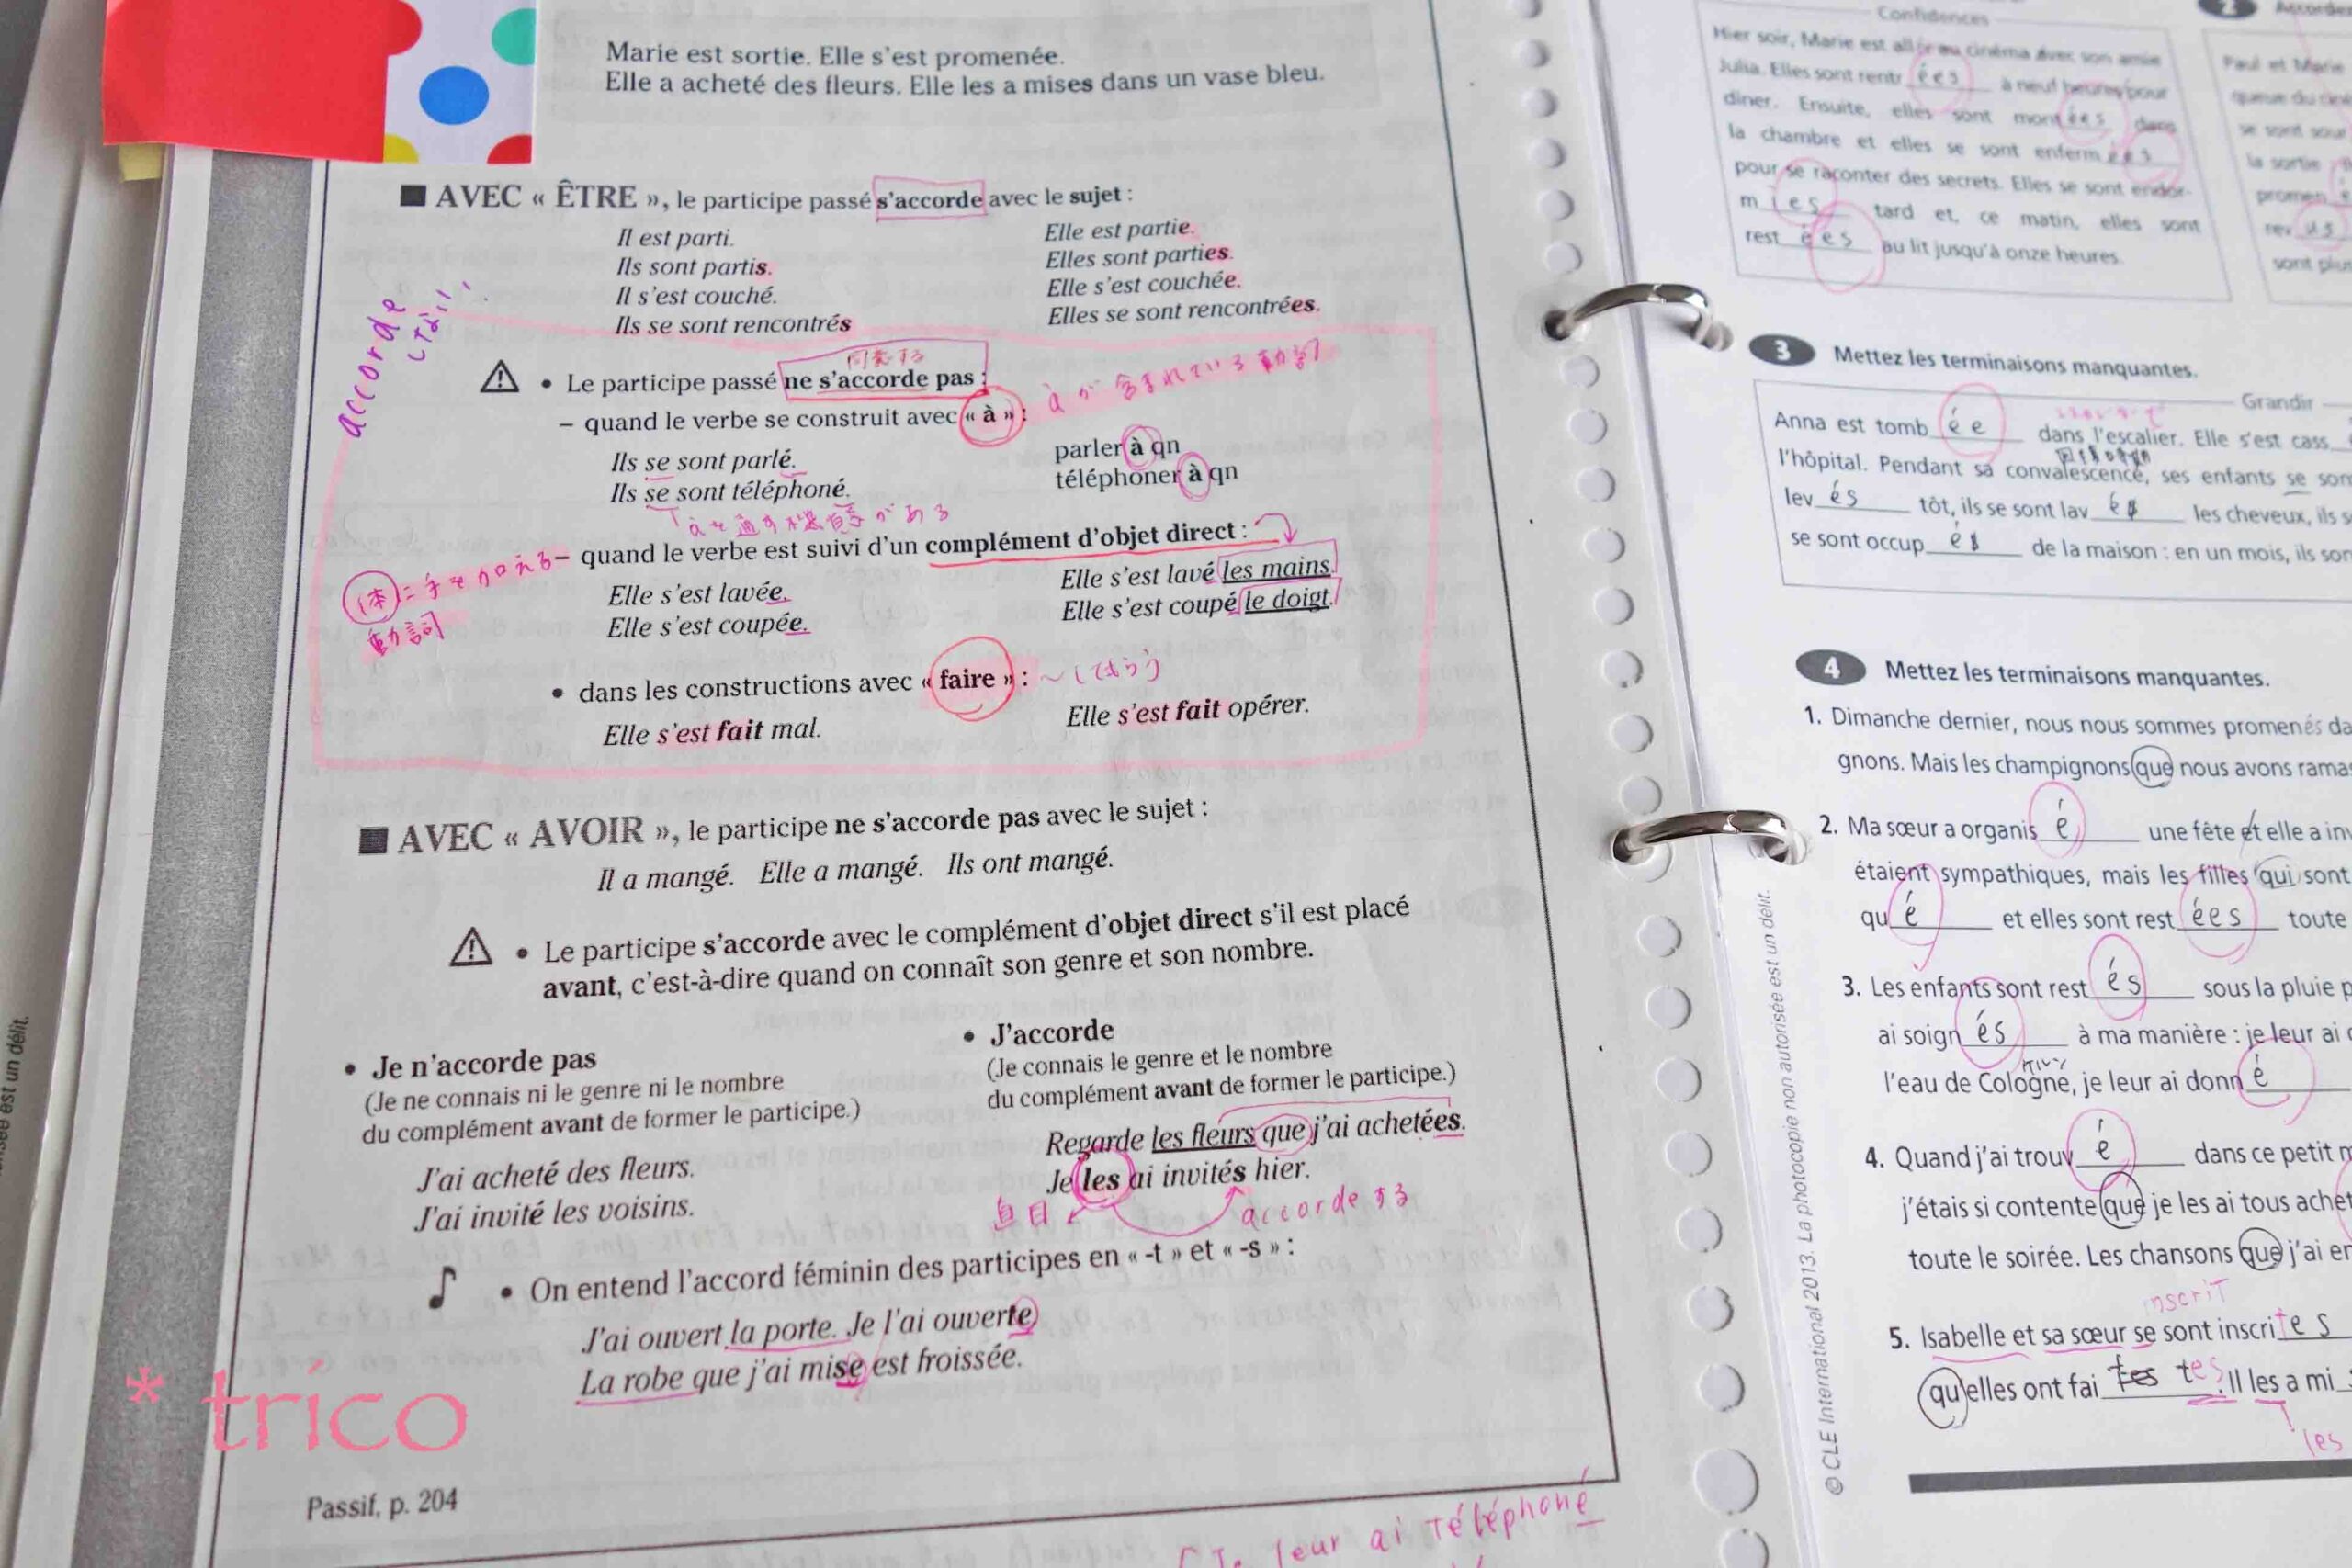 Marie est sortie. Elle s'est promenée.
Elle a acheté des fleurs. Elle les a mises dans un vase bleu.
AVEC « ÊTRE », le participe passé s'accorde avec le sujet :
Il est parti. Elle est partie.
Ils sont partis. Elles sont parties.
Il s'est couché. Elle s'est couchée.
Ils se sont rencontrés Elles se sont rencontrées.
accorde
同意する
• Le participe passé ne s'accorde pas :
– quand le verbe se construit avec « à » : àが含まれている動詞
Ils se sont parlé. parler à qn
Ils se sont téléphoné. téléphoner à qn
– quand le verbe est suivi d'un complément d'objet direct :
体に手を加える
動詞
Elle s'est lavée. Elle s'est lavé les mains.
Elle s'est coupée. Elle s'est coupé le doigt.
• dans les constructions avec « faire » : ~(てもらう)
Elle s'est fait mal. Elle s'est fait opérer.
AVEC « AVOIR », le participe ne s'accorde pas avec le sujet :
Il a mangé. Elle a mangé. Ils ont mangé.
• Le participe s'accorde avec le complément d'objet direct s'il est placé
avant, c'est-à-dire quand on connaît son genre et son nombre.
• Je n'accorde pas
(Je ne connais ni le genre ni le nombre
du complément avant de former le participe.)
J'ai acheté des fleurs.
J'ai invité les voisins.
• J'accorde
(Je connais le genre et le nombre
du complément avant de former le participe.)
Regarde les fleurs que j'ai achetées.
Je les ai invités hier.
accordeする
• On entend l'accord féminin des participes en « -t » et « -s » :
J'ai ouvert la porte. Je l'ai ouverte
La robe que j'ai mise est froissée.
* trico
Passif, p. 204
leur ai téléphoné
est un délit.
Confidences
Hier soir, Marie est allée au cinéma avec son amie
Julia. Elles sont rentrées à neuf heures pour
dîner. Ensuite, elles sont montées dans
la chambre et elles se sont enfermées
pour se raconter des secrets. Elles se sont endor-
mies tard et, ce matin, elles sont
restées au lit jusqu'à onze heures.
2
Paul et Marie
queue du
se sont
la sortie
promen
rev us
sont plus
3 Mettez les terminaisons manquantes.
Grandir
Anna est tombée dans l'escalier. Elle s'est cass
l'hôpital. Pendant sa convalescence, ses enfants se son
levés tôt, ils se sont lavé les cheveux, ils s
se sont occup de la maison : en un mois, ils son
4 Mettez les terminaisons manquantes.
1. Dimanche dernier, nous nous sommes promenés da
gnons. Mais les champignons que nous avons ramas
2. Ma sœur a organisé une fête et elle a inv
étaient sympathiques, mais les filles qui sont
qué et elles sont restées toute
3. Les enfants sont restés sous la pluie p
ai soignés à ma manière : je leur ai
l'eau de Cologne, je leur ai donné
4. Quand j'ai trouvé dans ce petit m
j'étais si contente que je les ai tous achet
toute le soirée. Les chansons que j'ai en
inscrit
5. Isabelle et sa sœur se sont inscrites
qu'elles ont fai tes. Il les a mi
les
© CLE International 2013. La photocopie non autorisée est un délit.